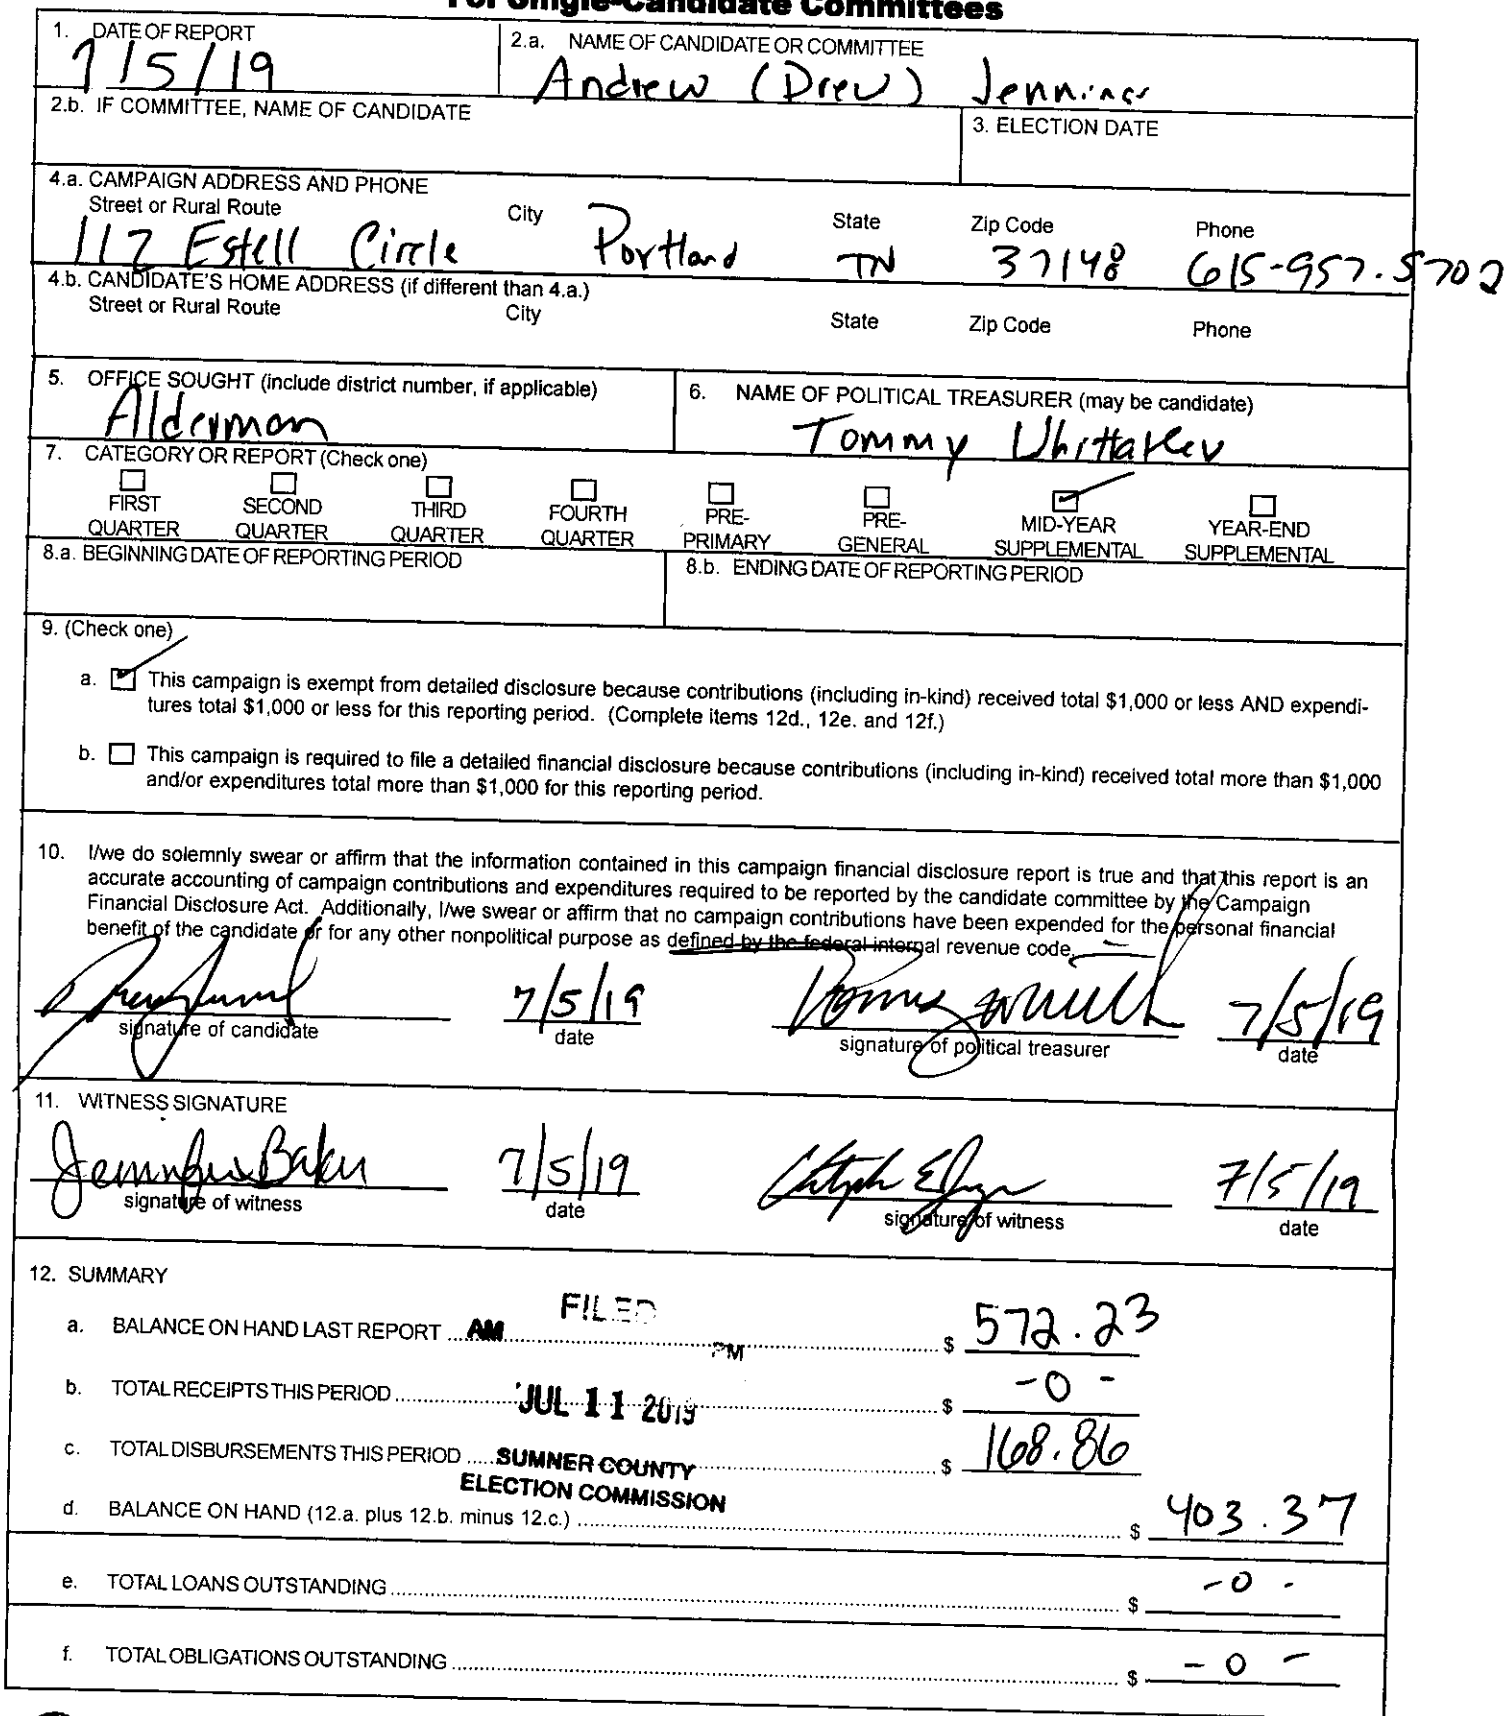 For Single-Candidate Committees
1. DATE OF REPORT
7/5/19
2.a. NAME OF CANDIDATE OR COMMITTEE
Andrew (Drew) Jennings
2.b. IF COMMITTEE, NAME OF CANDIDATE
3. ELECTION DATE
4.a. CAMPAIGN ADDRESS AND PHONE
Street or Rural Route City State Zip Code Phone
112 Estell Circle Portland TN 37148 615-957-5702
4.b. CANDIDATE'S HOME ADDRESS (if different than 4.a.)
Street or Rural Route City State Zip Code Phone
5. OFFICE SOUGHT (include district number, if applicable)
Alderman
6. NAME OF POLITICAL TREASURER (may be candidate)
Tommy Whittaker
7. CATEGORY OR REPORT (Check one)
FIRST QUARTER
SECOND QUARTER
THIRD QUARTER
FOURTH QUARTER
PRE-PRIMARY
PRE-GENERAL
MID-YEAR SUPPLEMENTAL
YEAR-END SUPPLEMENTAL
8.a. BEGINNING DATE OF REPORTING PERIOD
8.b. ENDING DATE OF REPORTING PERIOD
9. (Check one)
a. This campaign is exempt from detailed disclosure because contributions (including in-kind) received total $1,000 or less AND expendi-
tures total $1,000 or less for this reporting period. (Complete items 12d., 12e. and 12f.)
b. This campaign is required to file a detailed financial disclosure because contributions (including in-kind) received total more than $1,000
and/or expenditures total more than $1,000 for this reporting period.
10. I/we do solemnly swear or affirm that the information contained in this campaign financial disclosure report is true and that this report is an
accurate accounting of campaign contributions and expenditures required to be reported by the candidate committee by the Campaign
Financial Disclosure Act. Additionally, I/we swear or affirm that no campaign contributions have been expended for the personal financial
benefit of the candidate or for any other nonpolitical purpose as defined by the federal internal revenue code.
7/5/19 7/5/19
signature of candidate date signature of political treasurer date
11. WITNESS SIGNATURE
Jennifer Baker 7/5/19 7/5/19
signature of witness date signature of witness date
12. SUMMARY
FILED
a. BALANCE ON HAND LAST REPORT AM PM $ 572.23
b. TOTAL RECEIPTS THIS PERIOD $ -0-
JUL 11 2019
c. TOTAL DISBURSEMENTS THIS PERIOD $ 168.86
SUMNER COUNTY
ELECTION COMMISSION
d. BALANCE ON HAND (12.a. plus 12.b. minus 12.c.) $ 403.37
e. TOTAL LOANS OUTSTANDING $ -0-
f. TOTAL OBLIGATIONS OUTSTANDING $ -0-